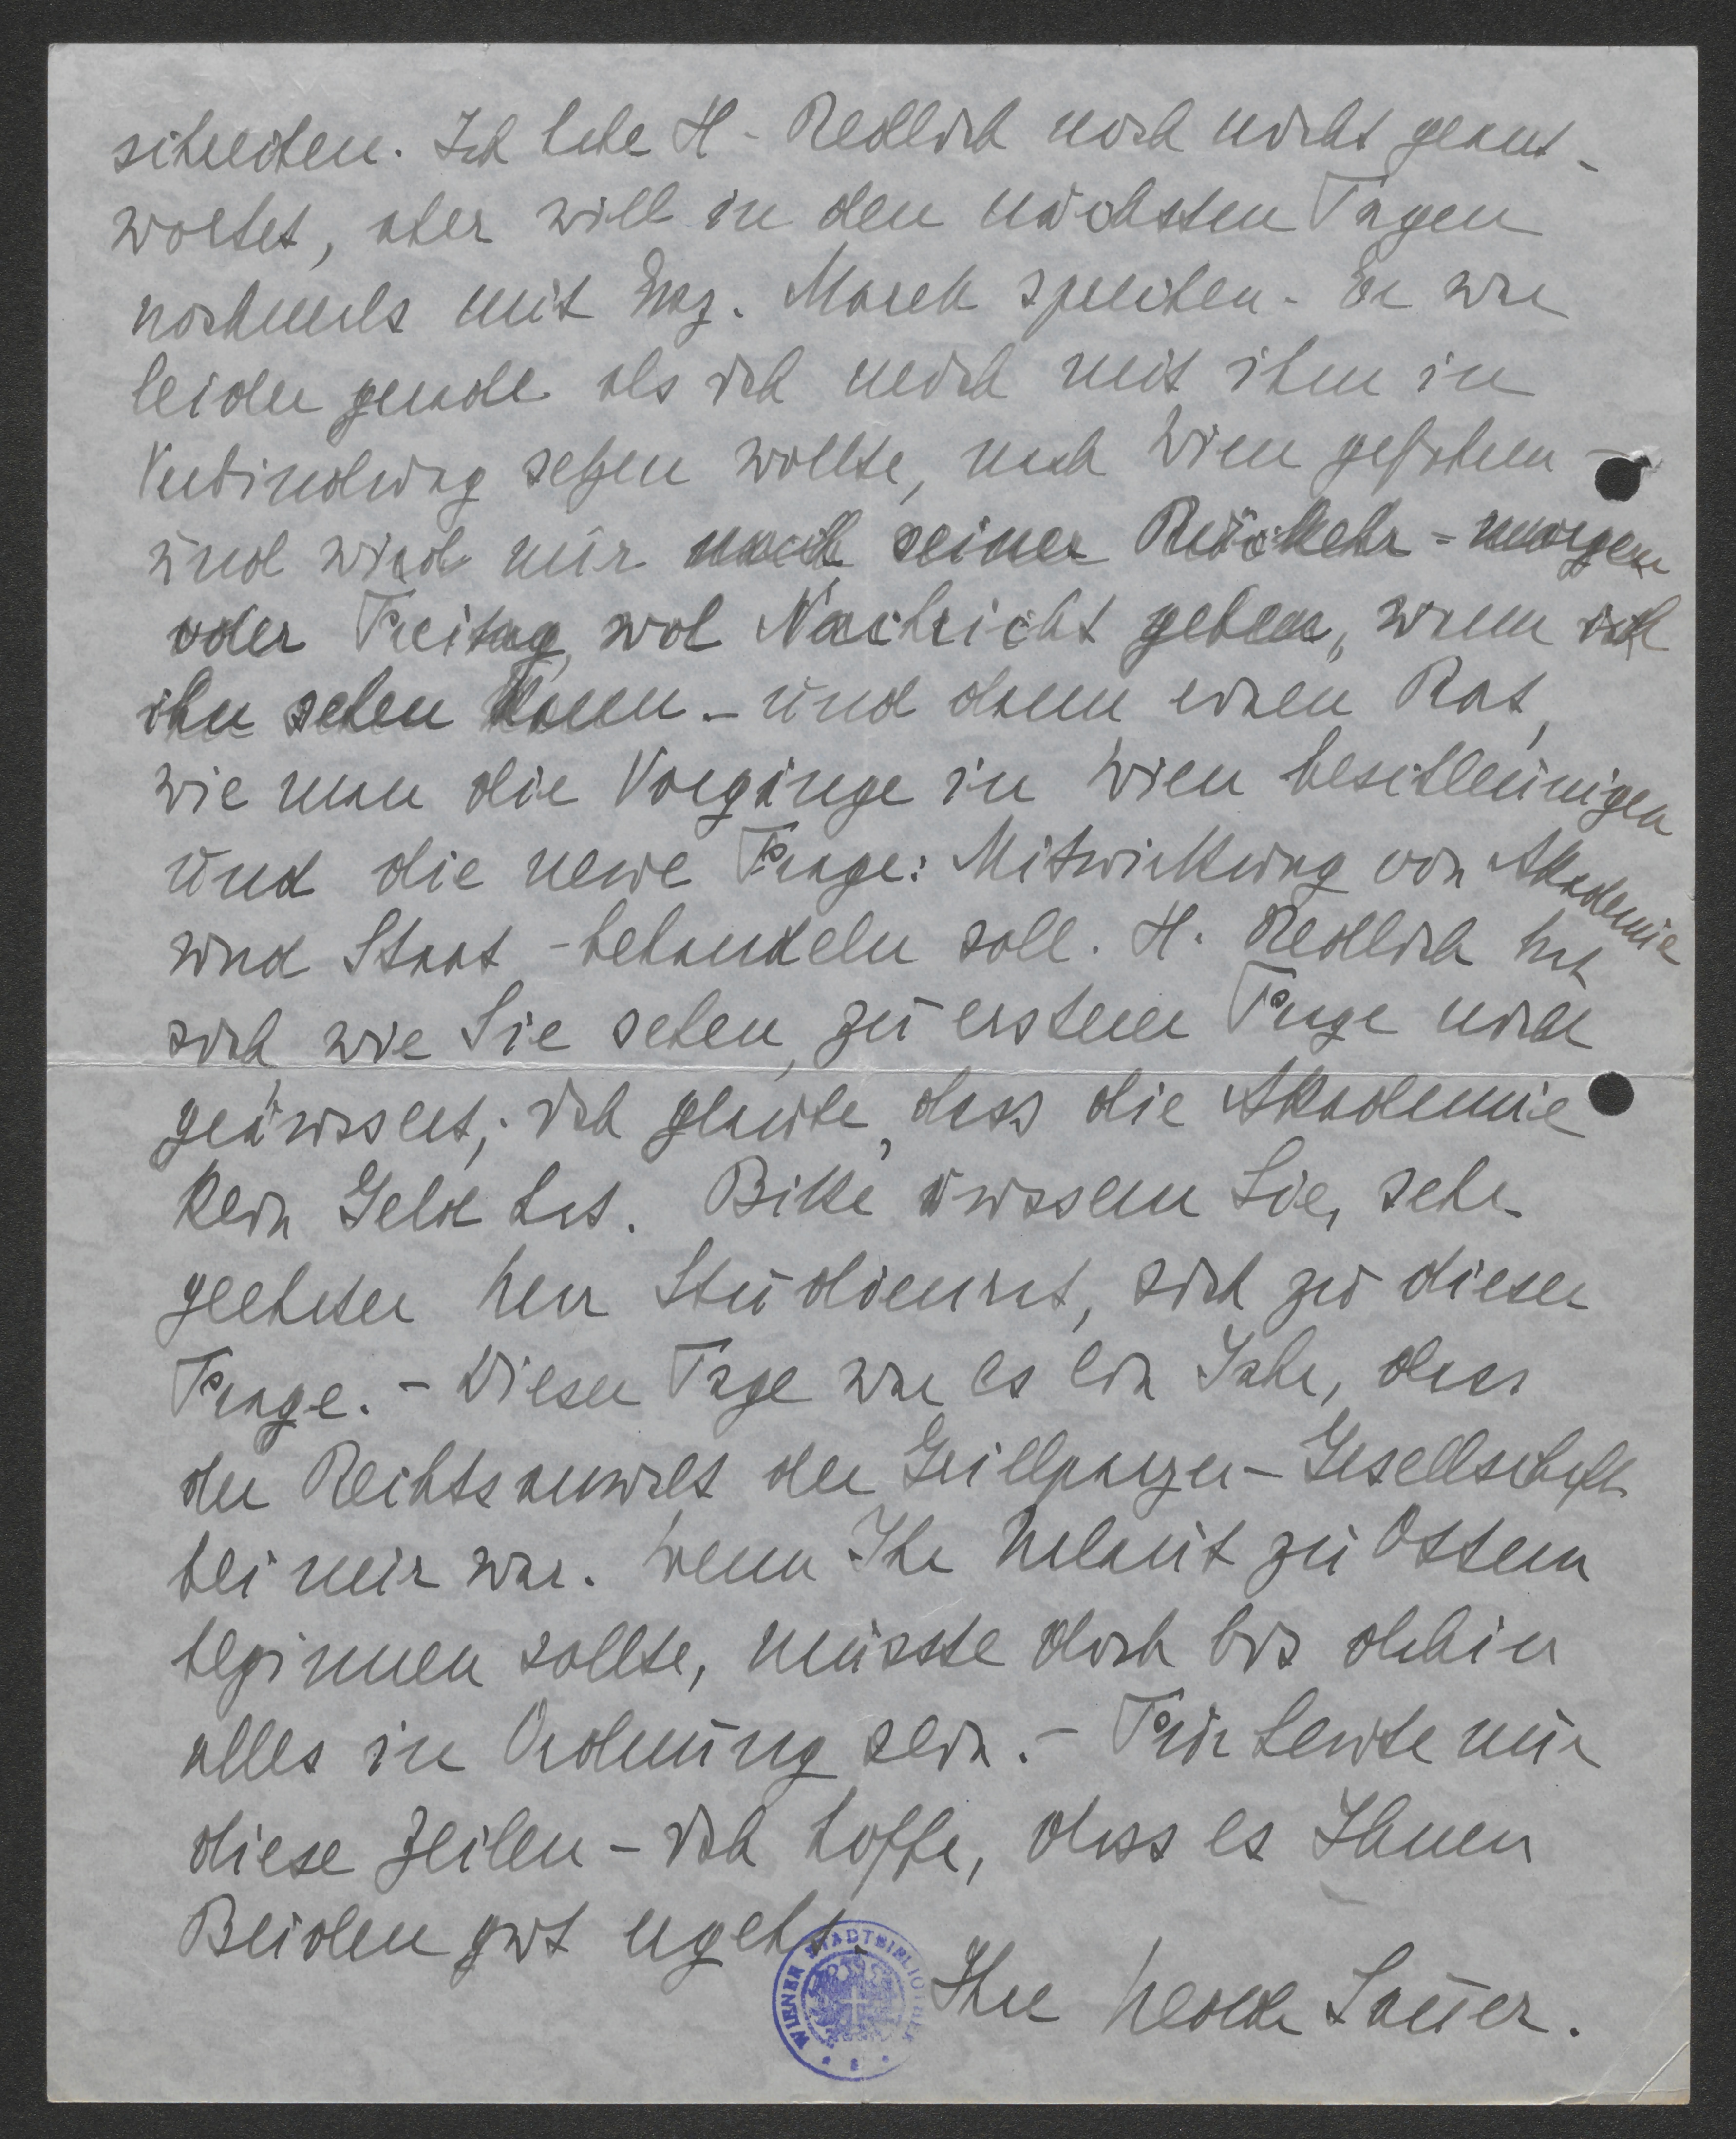 schreiben. Ich habe H. Redlich noch nicht geant-
wortet, aber will in den nächsten Tagen
nochmals mit Exz. Marek sprechen. Er war
leider gerade als ich mich mit ihm in
Verbindung setzen wollte, nach Wien gefahren –
und wird mir nach seiner Rückkehr – morgen
oder Freitag, wol Nachricht geben, wann ich
ihn sehen kann – und dann einen Rat,
wie man die Vorgänge in Wien beschleunigen
und die neue Frage: Mitwirkung von Akademie
und Staat – behandeln soll. H. Redlich hat
sich wie Sie sehen, zu ersterer Frage nicht
geäussert; ich glaube, dass die Akademie
kein Geld hat. Bitte äussern Sie, sehr
geehrter Herr Studienrat, sich zu dieser
Frage. – Dieser Tage war es ein Jahr, dass
der Rechtsanwalt der Grillparzer-Gesellschaft
bei mir war. Wenn Ihr Urlaub zu Ostern
beginnen sollte, müsste doch bis dahin
alles in Ordnung sein. – Für heute nur
diese Zeilen – ich hoffe, dass es Ihnen
Beiden gut ergeht.
Ihre Hedda Sauer.
WIENER STADTBIBLIOTHEK